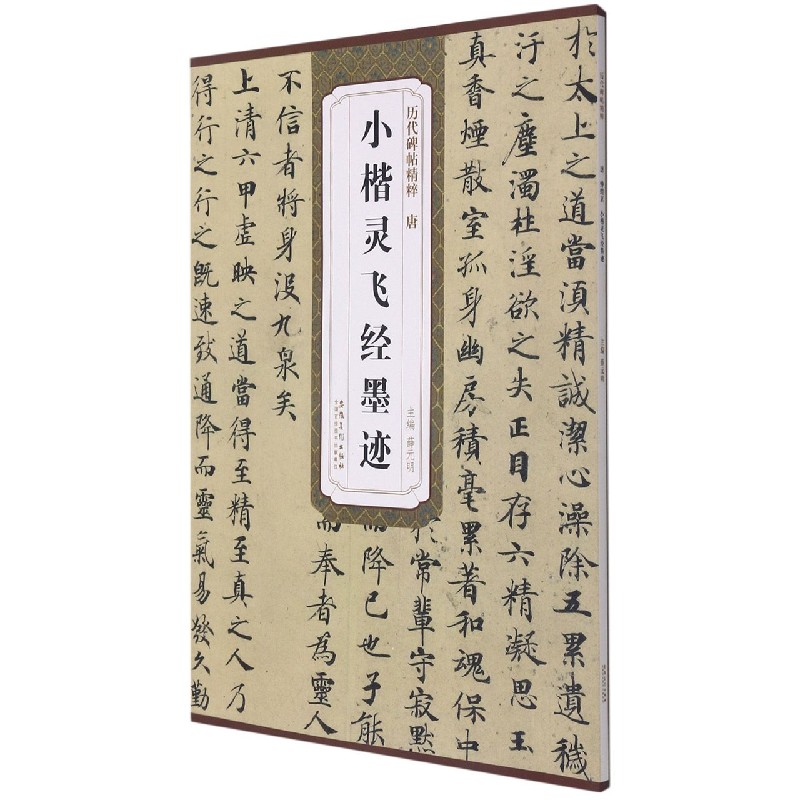 历代碑帖精粹 唐
小楷灵飞经墨迹
主编 薛元明
安徽美术出版社
於太上之道當湏精誠潔心澡除五累遺穢
汙之塵濁杜淫欲之失正目存六精凝思玉
真香煙散室孤身幽房積毫累著和魂保中
於常輩守寂默
而降已也子能
而奉者為靈人
不信者將身没九泉矣
上清六甲虚映之道當得至精至真之人乃
得行之行之既速致通降而靈氣易發久勤